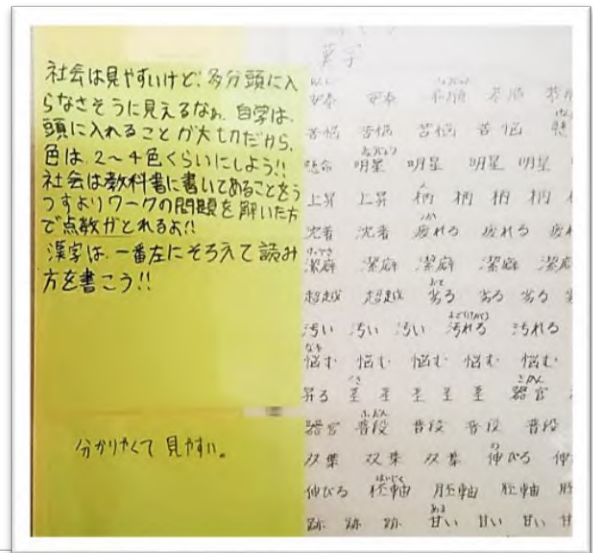 社会は見やすいけど、多分頭に入
らなさそうに見えるなぁ。自学は、
頭に入れることが大切だから、
色は、2〜4色くらいにしよう!!
社会は教科書に書いてあることをう
つすよりワークの問題を解いた方
で点数がとれるよ!!
漢字は、一番左にそろえて読み
方を書こう!!
分かりやくて見やすい。
漢字
苦悩 苦悩 苦悩 苦悩
懸命 明星 明星 明星 明星
上昇 上昇 柄 柄 柄 柄
沈着 沈着 疲れる 疲れる 疲れ
潔癖 潔癖 潔癖 潔癖 潔癖
超越 超越 劣る 劣る 劣る
汚い 汚い 汚い 汚れる 汚れる
悩む 悩む 悩む 悩む 悩む
昇る 至 至 至 至 至 器官
器官 普段 普段 普段 普段
双葉 双葉 双葉 伸びる 伸
伸びる 胚軸 胚軸 胚軸
跡 跡 跡 甘い 甘い 甘い 甘